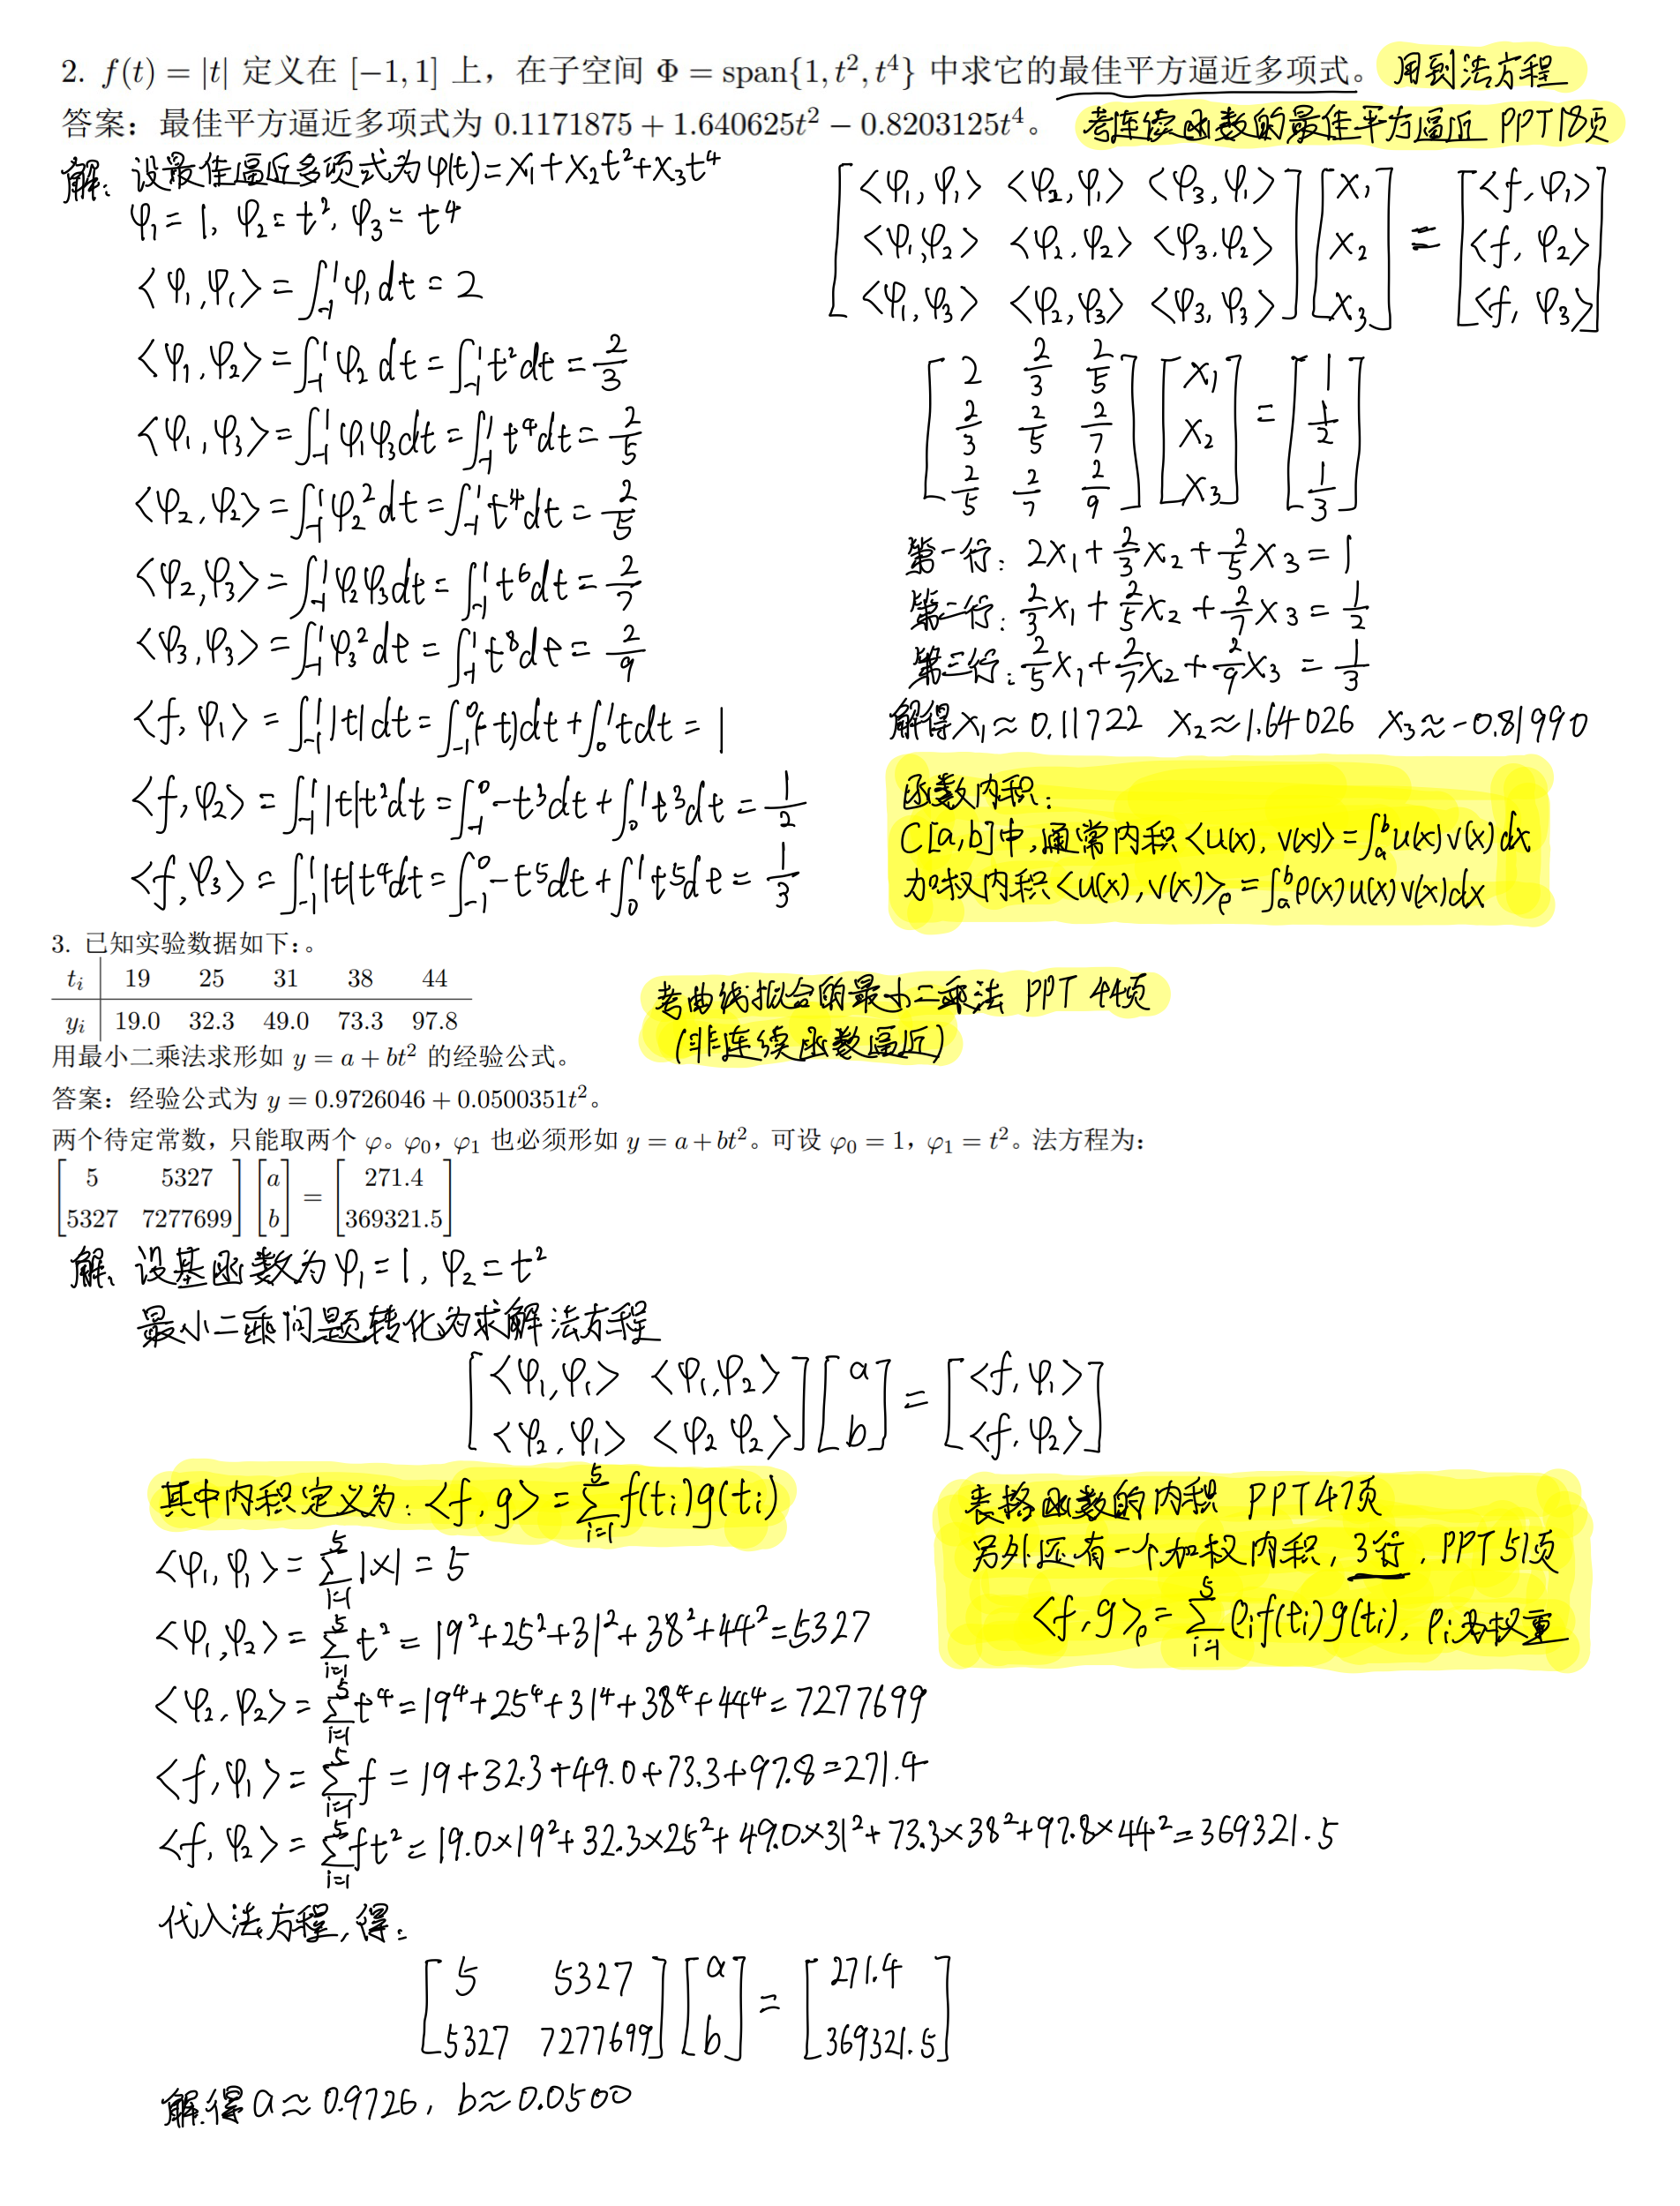 2. f(t) = |t| 定义在 [−1, 1] 上，在子空间 Φ = span{1, t², t⁴} 中求它的最佳平方逼近多项式。 用到法方程
答案：最佳平方逼近多项式为 0.1171875 + 1.640625t² − 0.8203125t⁴。 考连续函数的最佳平方逼近 PPT18页
解: 设最佳逼近多项式为φ(t)=x₁+x₂t²+x₃t⁴
φ₁=1, φ₂=t², φ₃=t⁴
<φ₁,φ₁>=∫₋₁¹φ₁dt=2
<φ₁,φ₂>=∫₋₁¹φ₂dt=∫₋₁¹t²dt=2/3
<φ₁,φ₃>=∫₋₁¹φ₁φ₃dt=∫₋₁¹t⁴dt=2/5
<φ₂,φ₂>=∫₋₁¹φ₂²dt=∫₋₁¹t⁴dt=2/5
<φ₂,φ₃>=∫₋₁¹φ₂φ₃dt=∫₋₁¹t⁶dt=2/7
<φ₃,φ₃>=∫₋₁¹φ₃²dt=∫₋₁¹t⁸dt=2/9
<f,φ₁>=∫₋₁¹|t|dt=∫₋₁⁰(-t)dt+∫₀¹tdt=1
<f,φ₂>=∫₋₁¹|t|t²dt=∫₋₁⁰-t³dt+∫₀¹t³dt=1/2
<f,φ₃>=∫₋₁¹|t|t⁴dt=∫₋₁⁰-t⁵dt+∫₀¹t⁵dt=1/3
[<φ₁,φ₁> <φ₂,φ₁> <φ₃,φ₁>] [x₁] = [<f,φ₁>]
[<φ₁,φ₂> <φ₂,φ₂> <φ₃,φ₂>] [x₂] [<f,φ₂>]
[<φ₁,φ₃> <φ₂,φ₃> <φ₃,φ₃>] [x₃] [<f,φ₃>]
[2 2/3 2/5] [x₁] = [1]
[2/3 2/5 2/7] [x₂] [1/2]
[2/5 2/7 2/9] [x₃] [1/3]
第一行: 2x₁+2/3x₂+2/5x₃=1
第二行: 2/3x₁+2/5x₂+2/7x₃=1/2
第三行: 2/5x₁+2/7x₂+2/9x₃=1/3
解得x₁≈0.11722 x₂≈1.64026 x₃≈-0.81990
函数内积:
C[a,b]中,通常内积<u(x),v(x)>=∫ₐᵇu(x)v(x)dx
加权内积<u(x),v(x)>ρ=∫ₐᵇρ(x)u(x)v(x)dx
3. 已知实验数据如下：。
tᵢ 19 25 31 38 44
yᵢ 19.0 32.3 49.0 73.3 97.8
考曲线拟合的最小二乘法 PPT 44页
(非连续函数逼近)
用最小二乘法求形如 y = a + bt² 的经验公式。
答案：经验公式为 y = 0.9726046 + 0.0500351t²。
两个待定常数，只能取两个 φ。φ₀，φ₁ 也必须形如 y = a + bt²。可设 φ₀ = 1，φ₁ = t²。法方程为：
[5 5327] [a] = [271.4]
[5327 7277699] [b] [369321.5]
解: 设基函数为φ₁=1, φ₂=t²
最小二乘问题转化为求解法方程
[<φ₁,φ₁> <φ₁,φ₂>] [a] = [<f,φ₁>]
[<φ₂,φ₁> <φ₂ φ₂>] [b] [<f,φ₂>]
其中内积定义为: <f,g>=∑ᵢ₌₁⁵f(tᵢ)g(tᵢ)
<φ₁,φ₁>=∑ᵢ₌₁⁵1×1=5
<φ₁,φ₂>=∑ᵢ₌₁⁵t²=19²+25²+31²+38²+44²=5327
<φ₂,φ₂>=∑ᵢ₌₁⁵t⁴=19⁴+25⁴+31⁴+38⁴+44⁴=7277699
<f,φ₁>=∑ᵢ₌₁⁵f=19+32.3+49.0+73.3+97.8=271.4
<f,φ₂>=∑ᵢ₌₁⁵ft²=19.0×19²+32.3×25²+49.0×31²+73.3×38²+97.8×44²=369321.5
表格函数的内积 PPT47页
另外还有一个加权内积, 3行, PPT51页
<f,g>ρ=∑ᵢ₌₁⁵ρᵢf(tᵢ)g(tᵢ), ρᵢ为权重
代入法方程,得:
[5 5327] [a] = [271.4]
[5327 7277699] [b] [369321.5]
解得a≈0.9726, b≈0.0500